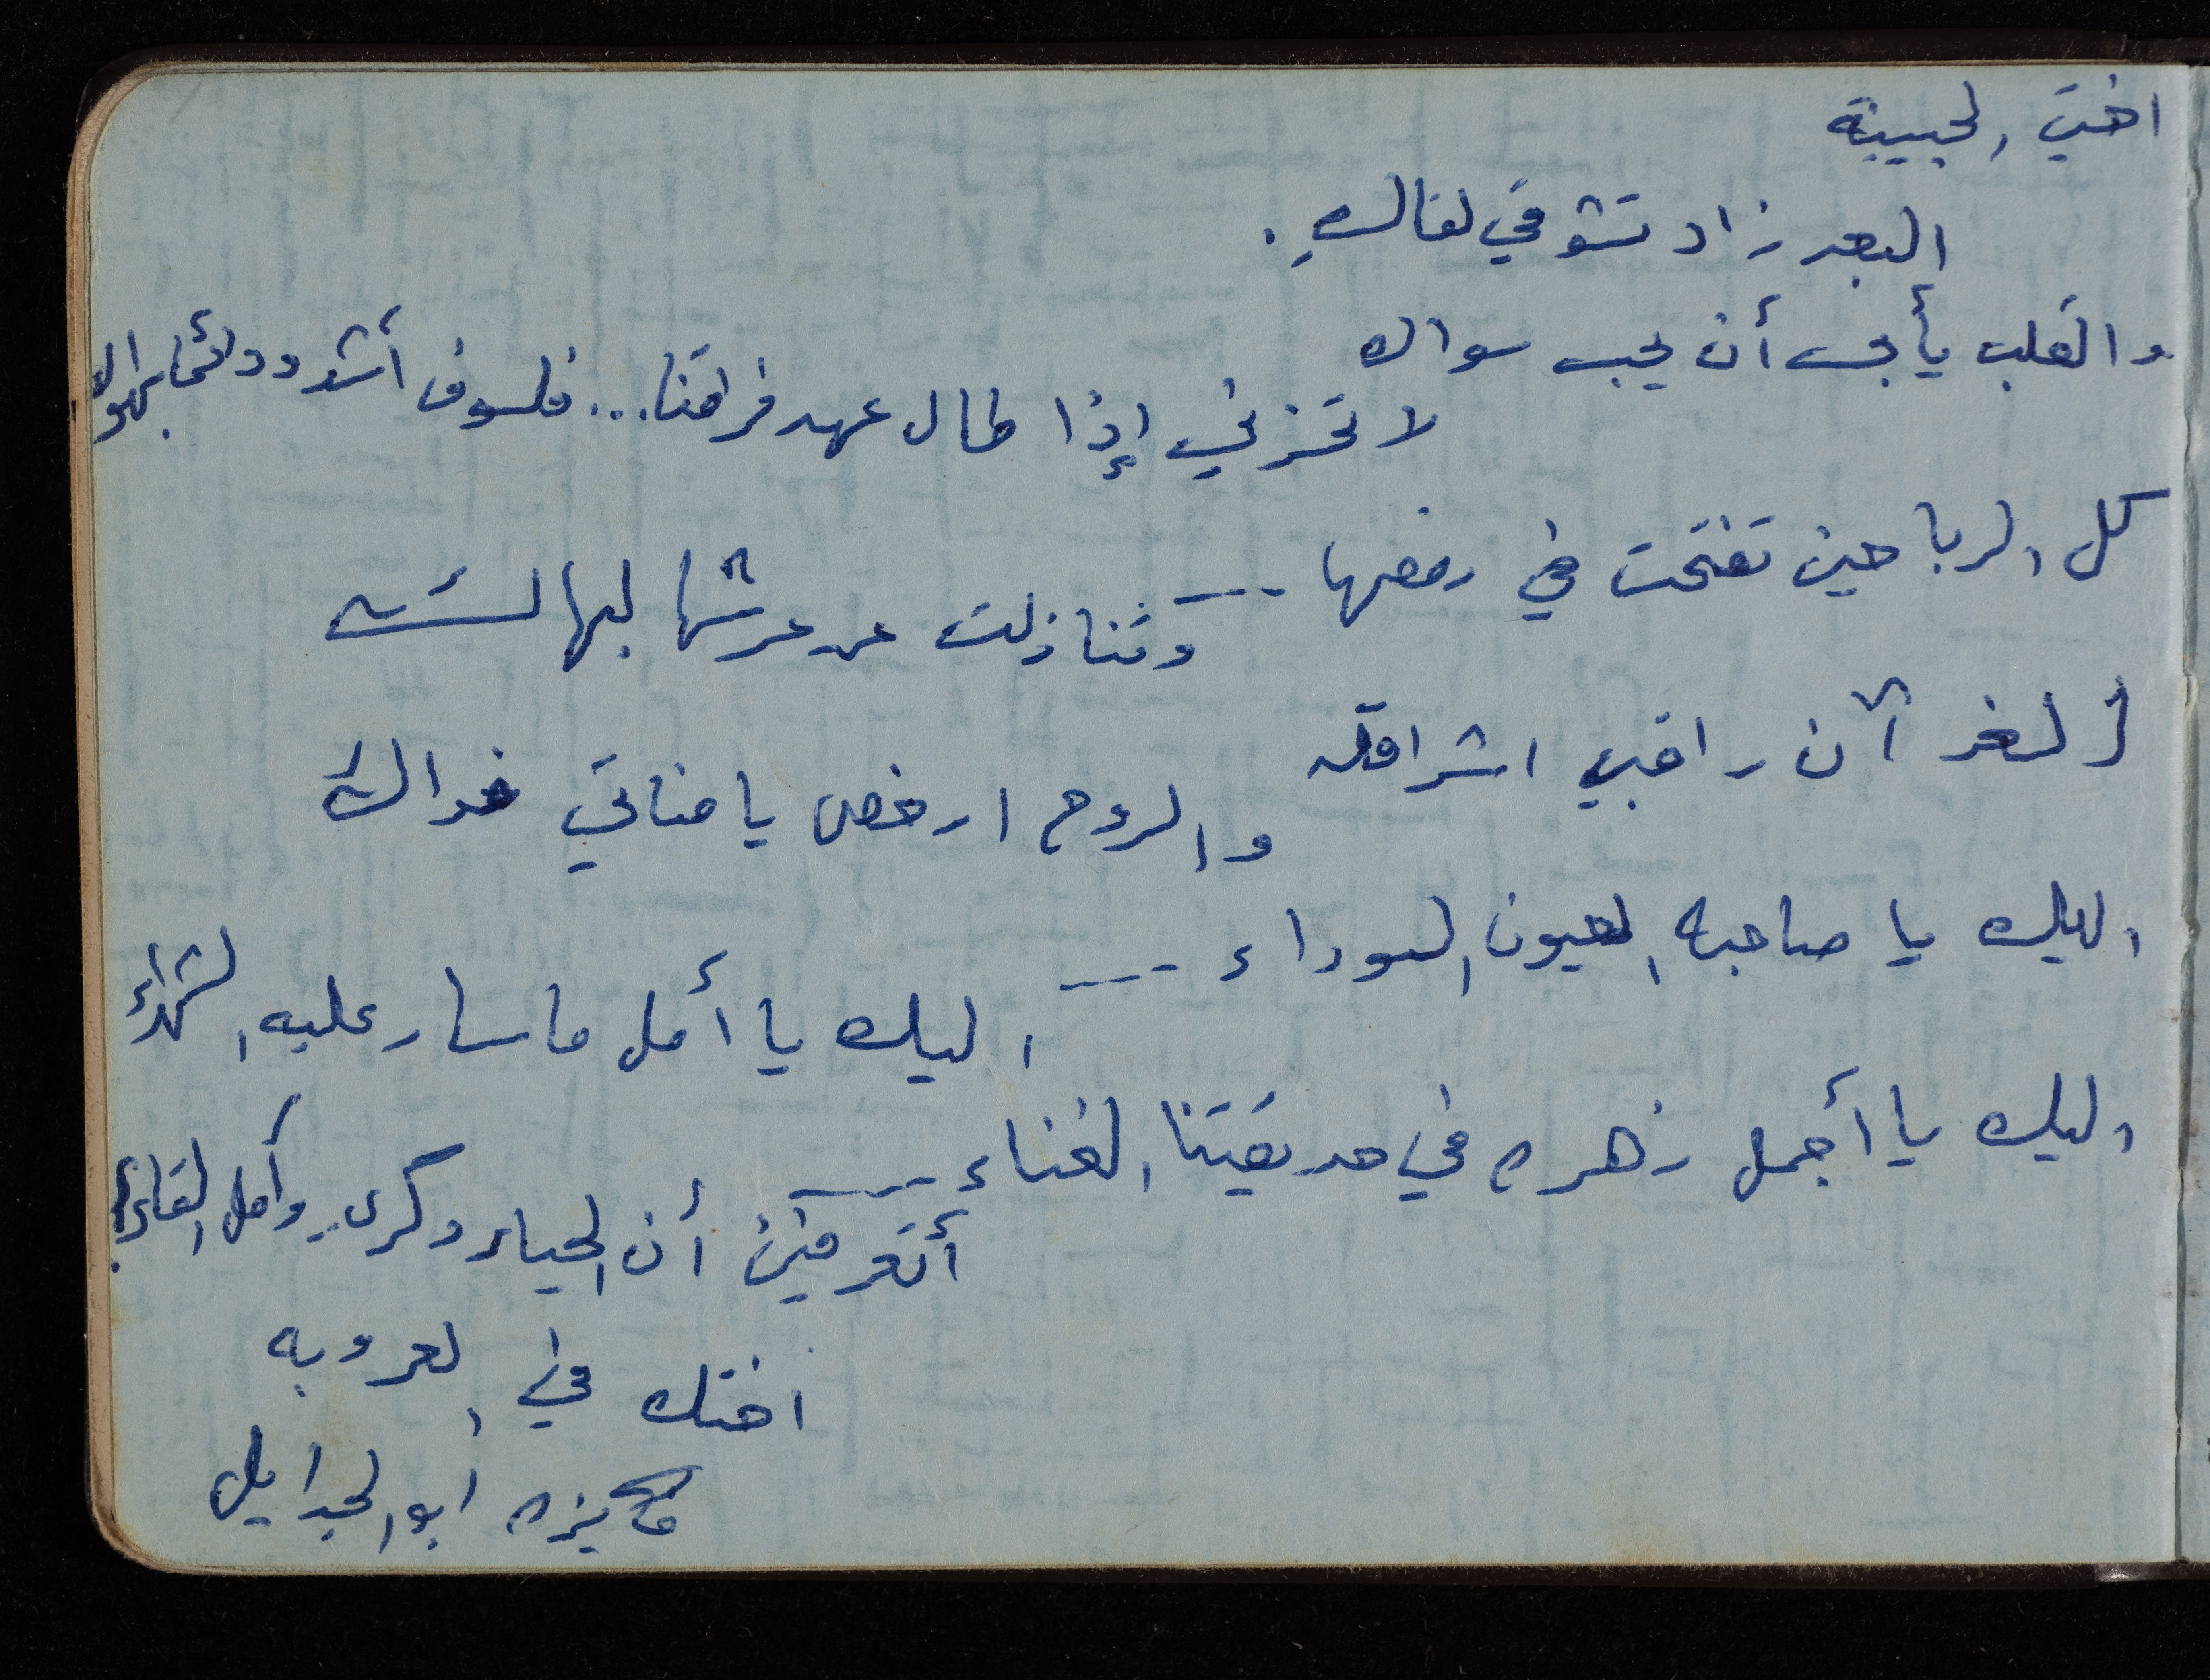 اختي الحبيبة
البعد زاد تشوقي لقاكِ .
والقلب يأبى أن يحب سواك
لا تحزني إذا طال عهد فراقنا... فلسوف أشدو دائما بهواك
كل الرياحين تفتحت في روضها ---
وتنازلت عن عرشها لبهاك
الغد آن راقبي اشراقه
والروح ارخص يا مناتي فداك
اليك يا صاحبه العيون السوداء ---
اليك يا أمل ما سار عليه الشهداء
اليك يا أجمل زهره في حديقتنا الغناء ---
أتعرفين أن الحياه ذكرى وأمل اللقاء
اختك في العروبه
فايزه أبو الجدايل